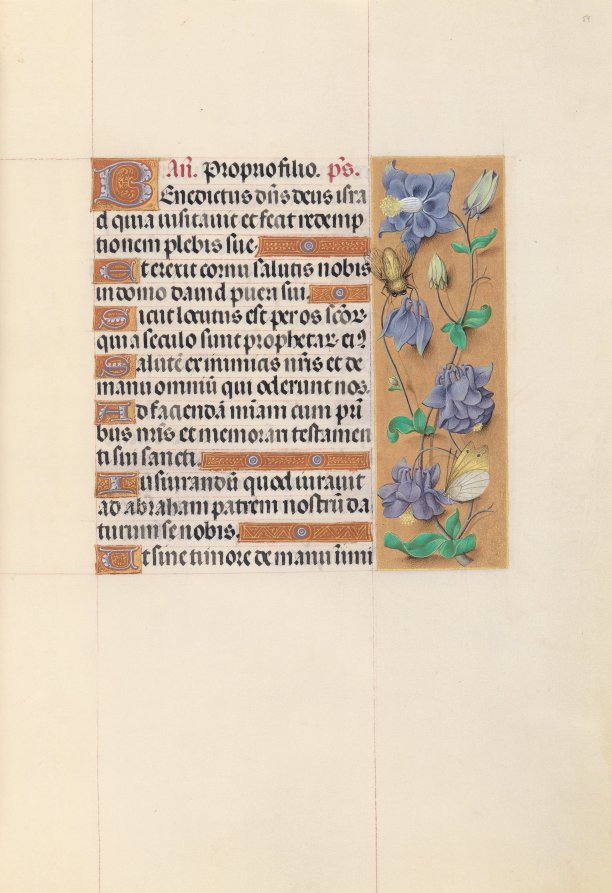 59
Añ. Proprio filio. p̄s.
Benedictus dn̄s deus isra
el quia uisitauit et fecit redemp
tionem plebis sue.
Et erexit cornu salutis nobis
in domo dauid pueri sui.
Sicut locutus est per os scōꝝ
qui a seculo sunt prophetaꝝ eiꝰ
Salutē ex inimicis nr̄is et de
manu omniū qui oderunt nos.
Ad faciendā mīam cum pri
bus nr̄is et memorari testamen
ti sui sancti.
Iusiurandū quod iurauit
ad abraham patrem nostrū da
turum se nobis.
Ut sine timore de manu inimi